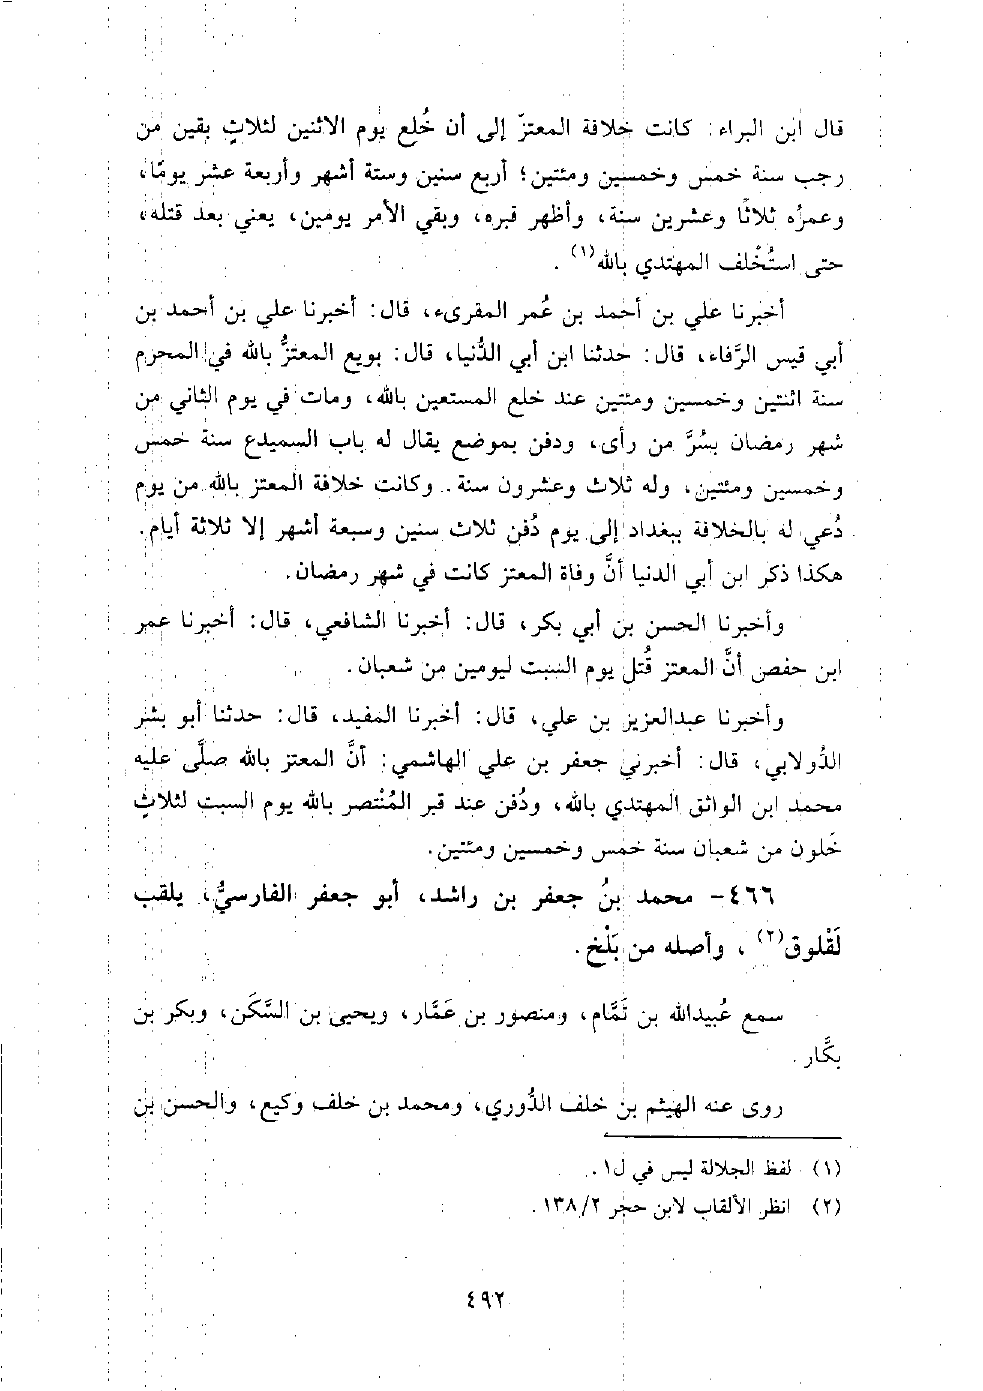 قال ابن البراء: كانت خلافة المعتزّ إلى أن خُلع يوم الاثنين لثلاثٍ بقين من
رجب سنة خمس وخمسين ومئتين؛ أربع سنين وستة أشهر وأربعة عشر يومًا،
وعمرُه ثلاثًا وعشرين سنة، وأظهر قبره، وبقي الأمر يومين، يعني بعد قتله،
حتى استُخْلف المهتدي بالله(١) .
أخبرنا علي بن أحمد بن عُمر المقرىء، قال: أخبرنا علي بن أحمد بن
أبي قيس الرَّفاء، قال: حدثنا ابن أبي الدُّنيا، قال: بويع المعتزُّ بالله في المحرم
سنة اثنتين وخمسين ومئتين عند خلع المستعين بالله، ومات في يوم الثاني من
شهر رمضان بسُرَّ من رأى، ودفن بموضع يقال له باب السميدع سنة خمس
وخمسين ومئتين، وله ثلاث وعشرون سنة. وكانت خلافة المعتز بالله من يوم
دُعي له بالخلافة ببغداد إلى يوم دُفن ثلاث سنين وسبعة أشهر إلا ثلاثة أيام.
هكذا ذكر ابن أبي الدنيا أنَّ وفاة المعتز كانت في شهر رمضان.
وأخبرنا الحسن بن أبي بكر، قال: أخبرنا الشافعي، قال: أخبرنا عمر
ابن حفص أنَّ المعتز قُتل يوم السبت ليومين من شعبان.
وأخبرنا عبدالعزيز بن علي، قال: أخبرنا المفيد، قال: حدثنا أبو بشر
الدُّولابي، قال: أخبرني جعفر بن علي الهاشمي: أنَّ المعتز بالله صلَّى عليه
محمد ابن الواثق المهتدي بالله، ودُفن عند قبر المُنْتصر بالله يوم السبت لثلاثٍ
خَلون من شعبان سنة خمس وخمسين ومئتين.
٤٦٦- محمد بنُ جعفر بن راشد، أبو جعفر الفارسيُّ، يلقب
لَقْلوق(٢) ، وأصله من بَلْخ.
سمع عُبيدالله بن تَمَّام، ومنصور بن عَمَّار، ويحيى بن السَّكَن، وبكر بن
بكَّار.
روى عنه الهيثم بن خلف الدُّوري، ومحمد بن خلف وكيع، والحسن بن
(١) لفظ الجلالة ليس في ل١.
(٢) انظر الألقاب لابن حجر ١٣٨/٢.
٤٩٢